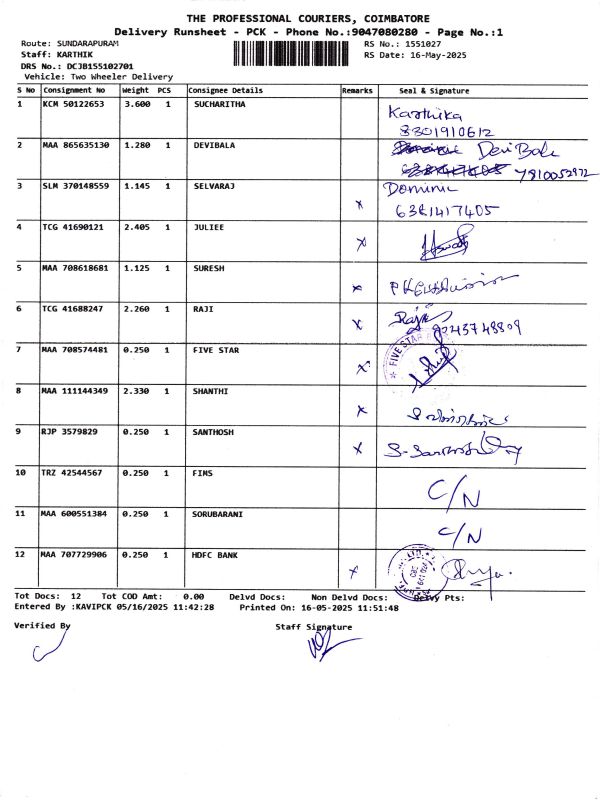 THE PROFESSIONAL COURIERS, COIMBATORE
Delivery Runsheet - PCK - Phone No.:9047080280 - Page No.:1
Route: SUNDARAPURAM RS No.: 1551027
Staff: KARTHIK RS Date: 16-May-2025
DRS No.: DCJB155102701
Vehicle: Two Wheeler Delivery
S No Consignment No Weight PCS Consignee Details Remarks Seal & Signature
1 KCM 50122653 3.600 1 SUCHARITHA Karthika
8301910612
2 MAA 865635130 1.280 1 DEVIBALA Devi Bala
7810052872
3 SLM 370148559 1.145 1 SELVARAJ x Dominic
6381417405
4 TCG 41690121 2.405 1 JULIEE x
5 MAA 708618681 1.125 1 SURESH x
6 TCG 41688247 2.260 1 RAJI x Raji
9043748809
7 MAA 708574481 0.250 1 FIVE STAR x FIVE STAR
8 MAA 111144349 2.330 1 SHANTHI x
9 RJP 3579829 0.250 1 SANTHOSH x S-Santhosh
10 TRZ 42544567 0.250 1 FIMS C/N
11 MAA 600551384 0.250 1 SORUBARANI C/N
12 MAA 707729906 0.250 1 HDFC BANK x
Tot Docs: 12 Tot COD Amt: 0.00 Delvd Docs: Non Delvd Docs: Delvy Pts:
Entered By :KAVIPCK 05/16/2025 11:42:28 Printed On: 16-05-2025 11:51:48
Verified By Staff Signature